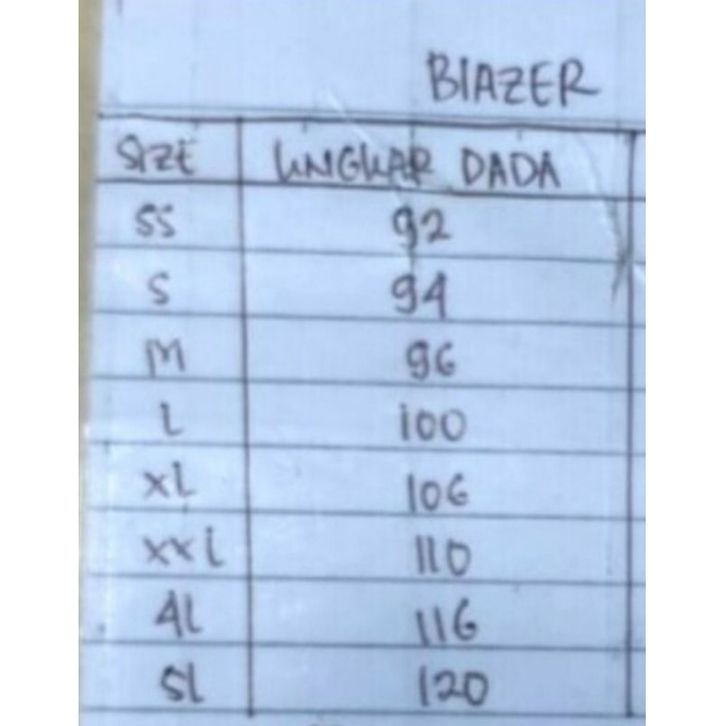 BLAZER
SIZE LINGKAR DADA
SS 92
S 94
M 96
L 100
XL 106
XXL 110
4L 116
5L 120